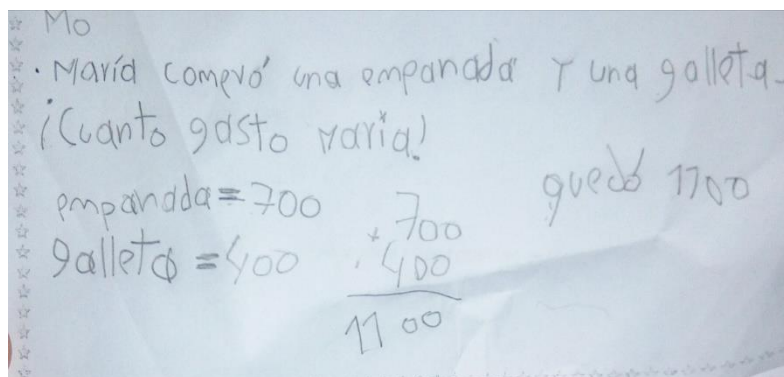 Mo
. María compró una empanada Y una galleta.
¡Cuanto gasto María!
empanada = 700
galleta = 400
+ 700
. 400
1100
quedó 1100